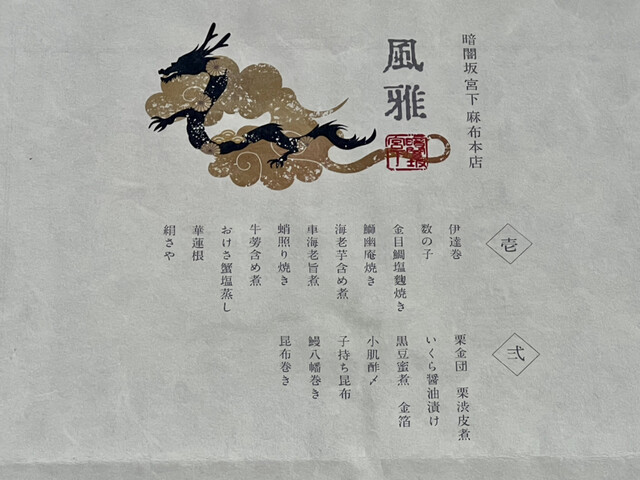 暗闇坂 宮下 麻布本店
風雅
暗闇坂
宮下
壱
伊達巻
数の子
金目鯛塩麴焼き
鰤幽庵焼き
海老芋含め煮
車海老旨煮
蛸照り焼き
牛蒡含め煮
おけさ蟹塩蒸し
華蓮根
絹さや
弐
栗金団 栗渋皮煮
いくら醤油漬け
黒豆蜜煮 金箔
小肌酢〆
子持ち昆布
鰻八幡巻き
昆布巻き